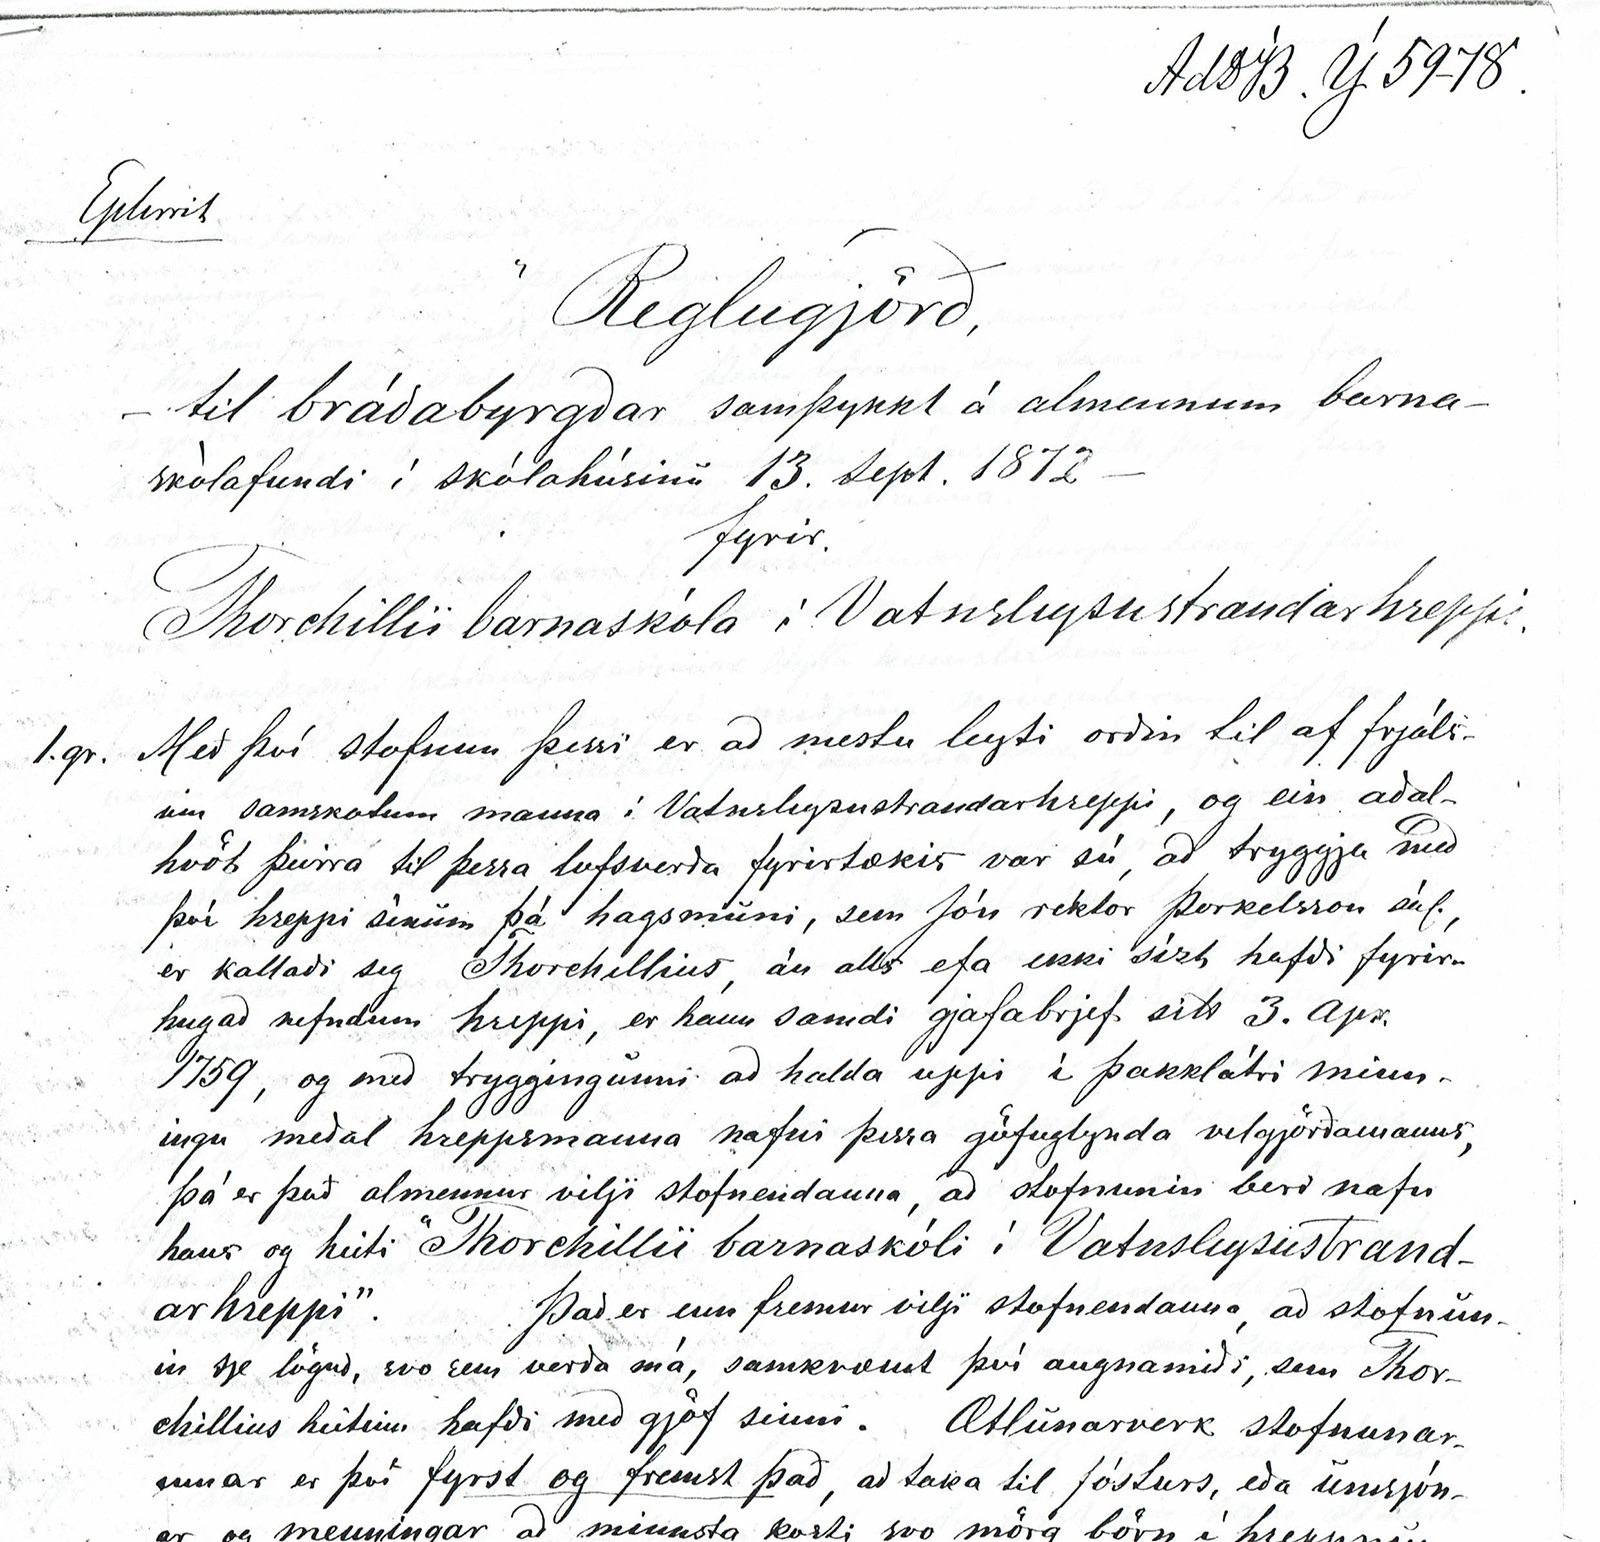 Eptirrit
"Reglugjörð,
– til bráðabyrgðar samþykkt á almennum barna–
skólafundi í skólahúsinu 13. sept. 1872 –
fyrir.
Thorchillii barnaskóla í Vatnsleysustrandarhreppi.
1. gr. Með því stofnun þessi er að mestu leyti orðin til af frjáls-
um samskotum manna í Vatnsleysustrandarhreppi, og ein aðal-
hvöt þeirra til þessa lofsverða fyrirtækis var sú, að tryggja með
því hreppi sínum þá hagsmuni, sem Jón rektor Þorkelsson sál.,
er kallaði sig Thorchillius, án alls efa ekki sízt hafði fyrir-
hugað nefndum hreppi, er hann samdi gjafabrjef sitt 3. Apr.
1759, og með tryggingunni að halda uppi í þakklátri minn-
ingu meðal hreppsmanna nafni þessa göfuglynda velgjörðamanns,
þá er það almennur vilji stofnendanna, að stofnunin beri nafn
hans og heiti "Thorchillii barnaskóli í Vatnsleysustrand-
arhreppi". Það er enn fremur vilji stofnendanna, að stofnun-
in sje löguð, svo sem verða má, samkvæmt því augnamiði, sem Thor-
chillius heitinn hafði með gjöf sinni. Ætlunarverk stofnunar-
innar er því fyrst og fremst það, að taka til fósturs, eða umsjón-
ar og menningar að minnsta kosti svo mörg börn í hreppnum